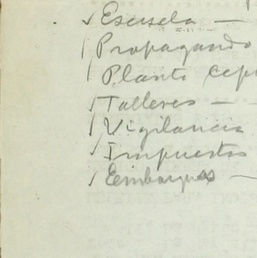 ✓ Escuela —
Propagando
Planta
✓ Talleres —
✓ Vigilancia
✓ Impuestos
✓ Embarques —